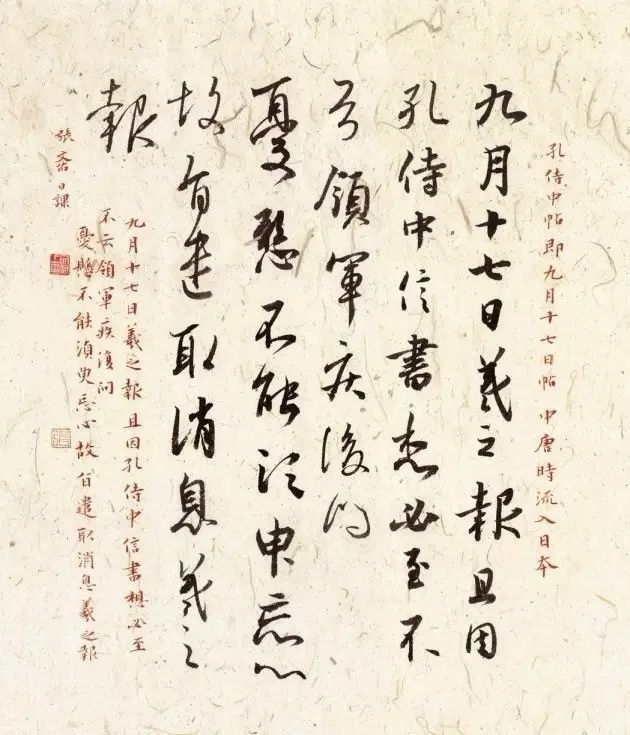 孔侍中帖即九月十七日帖 中唐時流入日本
九月十七日羲之報且因
孔侍中信書想必至不
知領軍疾後問
憂懸不能須臾忘心
故旨遣取消息羲之
報
九月十七日羲之報且因孔侍中信書想必至
不云領軍疾復问
憂懸不能湏臾忘心故旨遣取消息羲之報
張 日課